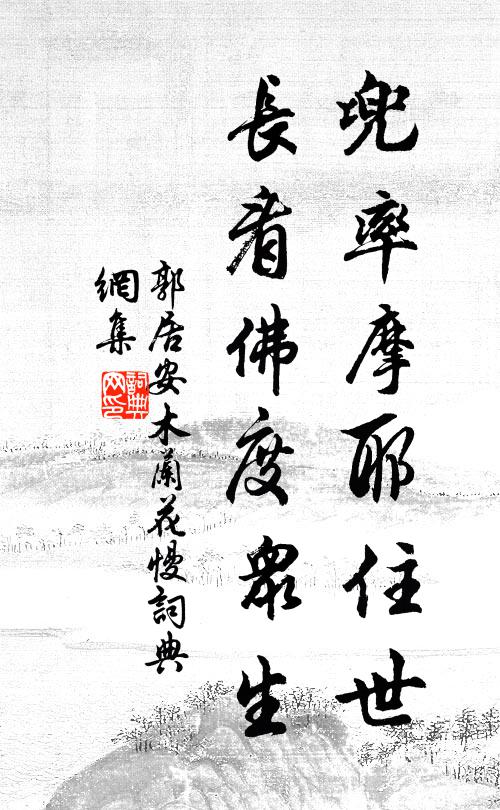 兜率摩耶住世
長看佛度眾生
郭居安木蘭花慢詞典
網集
詞典
網印